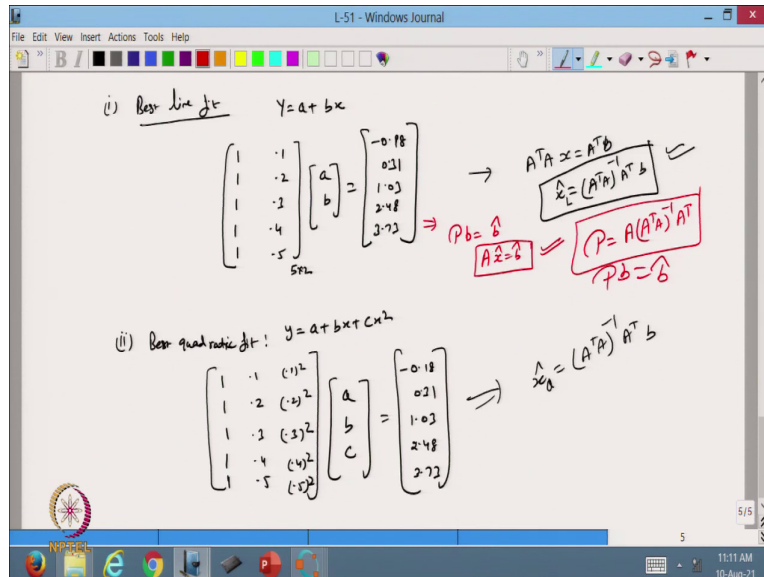 L-51 - Windows Journal
File Edit View Insert Actions Tools Help
(i) Best line fit y = a + bx
[1 .1; 1 .2; 1 .3; 1 .4; 1 .5] 5×2 [a; b] = [-0.18; 0.31; 1.03; 2.48; 3.73] → AᵀA x = Aᵀb
x̂_L = (AᵀA)⁻¹ Aᵀ b ✓
⇒ Pb = b̂
Ax̂ = b̂ ✓ P = A(AᵀA)⁻¹Aᵀ
Pb = b̂
(ii) Best quadratic fit: y = a + bx + cx²
[1 .1 (.1)²; 1 .2 (.2)²; 1 .3 (.3)²; 1 .4 (.4)²; 1 .5 (.5)²] [a; b; c] = [-0.18; 0.31; 1.03; 2.48; 3.73] ⇒ x̂_Q = (AᵀA)⁻¹ Aᵀ b
5/5
5
NPTEL
11:11 AM
10-Aug-21